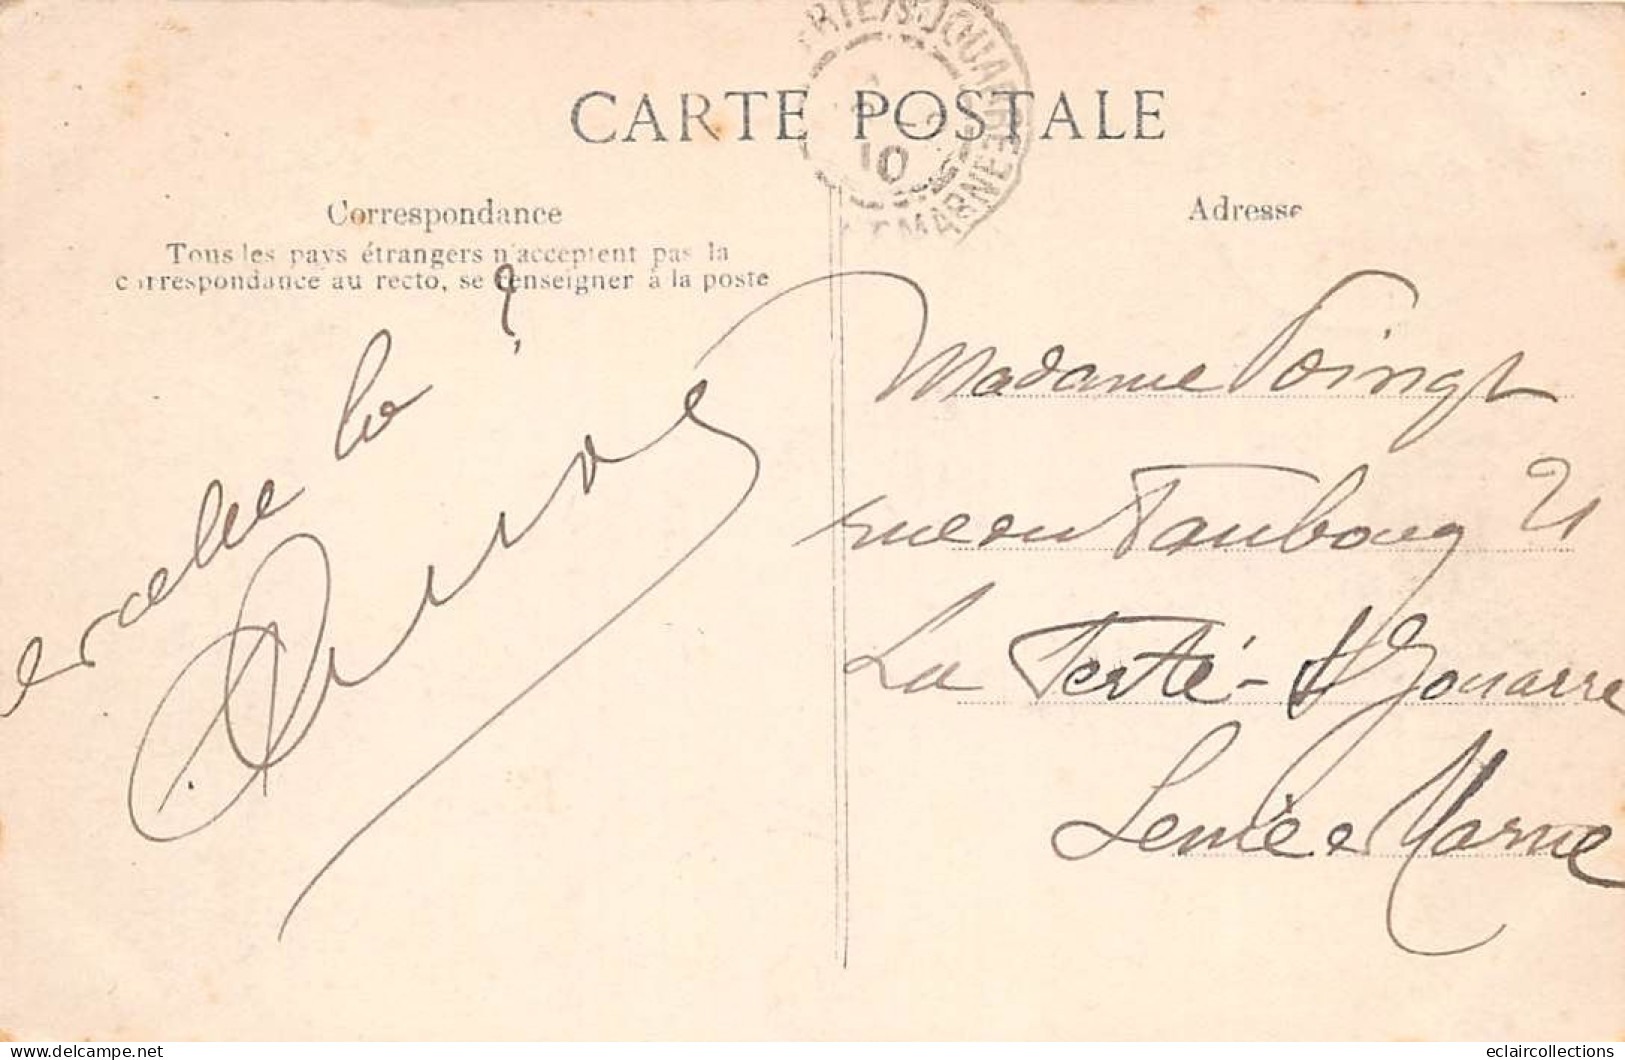 CARTE POSTALE
Correspondance
Tous les pays étrangers n'acceptent pas la
correspondance au recto, se renseigner à la poste
Adresse
Madame Poingt
rue du Faubourg 21
La Ferté-s/Jouarre
Seine & Marne
JOUARRE
MARNE
10
www.eclaircollections
www.delcampe.net